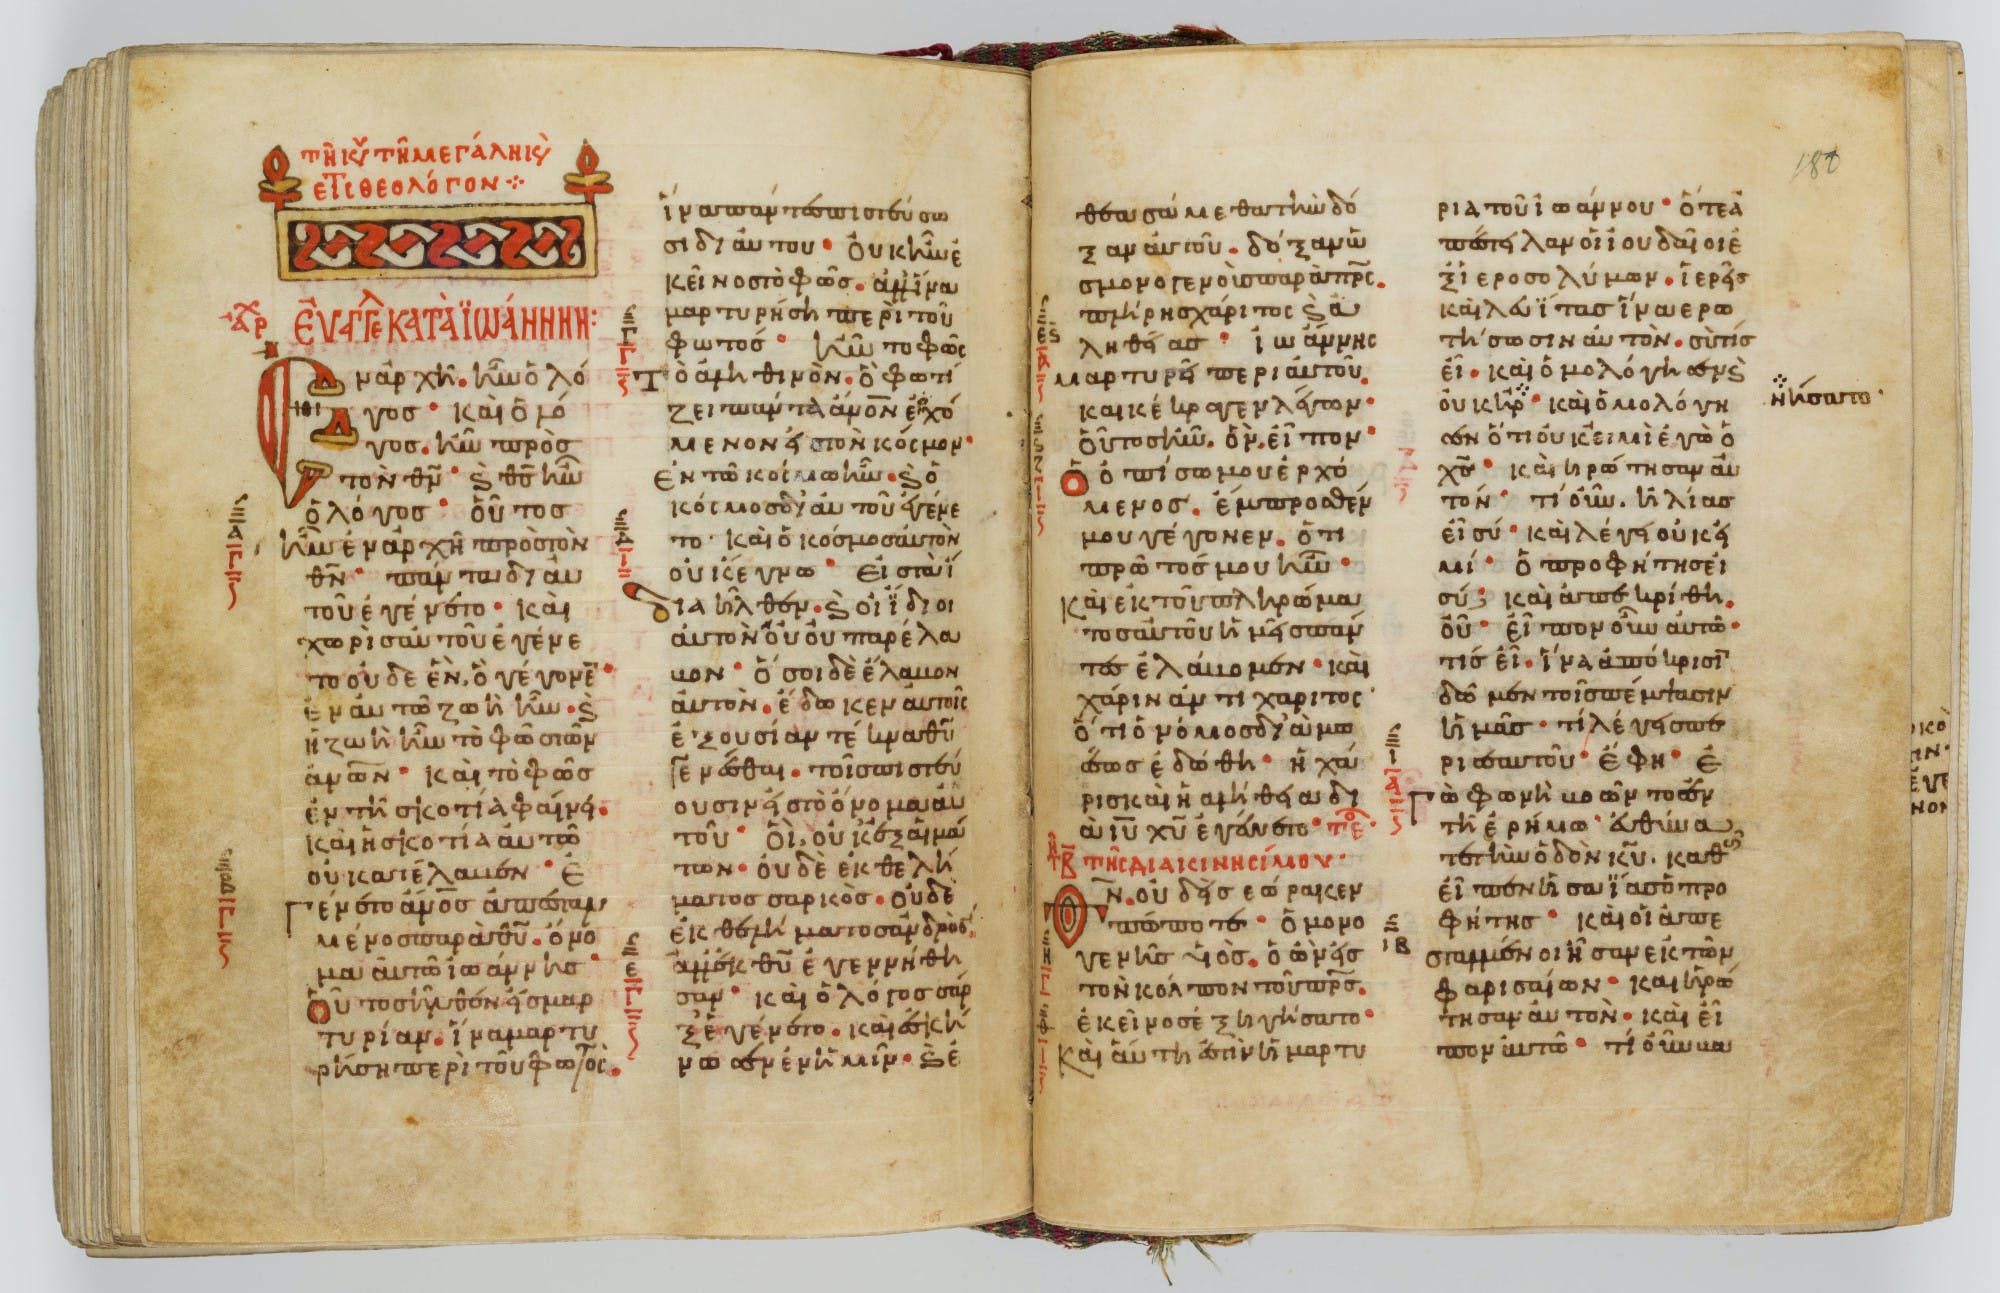 τῆ κυ τῆ μεγάλη κυ
θεολόγον
Εὐαγγε κατὰ ϊωάννην:
Ἐν ἀρχῆ. ἦν ὁ λό
γος· καὶ ὁ λό
γος. ἦν πρὸς
τὸν θν· ϗ θς ἦν
ὁ λόγος· οὗτος
ἦν ἐν ἀρχῆ πρὸς τὸν
θν· πάντα δι αὐ
τοῦ ἐγένετο· καὶ
χωρὶς αὐτοῦ ἐγένε
το οὐδε ἓν. ὃ γέγονεν·
ἐν αὐτῶ ζωὴ ἦν. ϗ
ἡ ζωὴ ἦν τὸ φῶς τῶν
ἀνων· καὶ τὸ φῶς
ἐν τῆ σκοτία φαίνει.
καὶ ἡ σκοτία αὐτῶ
οὐ κατέλαβεν· Ἐ
γένετο ἄνος ἀπεσταλ
μένος παρὰ θυ. ὄνο
μα αὐτῶ ἰωάννης·
Οὗτος ἦλθεν εἰς μαρ
τυρίαν. ἵνα μαρτυ
ρήση περὶ τοῦ φωτός.
ἵνα πάντες πιστεύσω
σι δι αὐτου· Οὐκ ἦν ἐ
κεῖνος τὸ φῶς. ἀλλ ἵνα
μαρτυρήση περὶ τοῦ
φωτός· ἦν το φῶς
Τὸ ἀληθινὸν. ὃ φωτί
ζει πάντα ἀνον ἐρχό
μενον εἰς τὸν κόσμον·
Ἐν τῶ κόσμω ἦν. ϗ ὁ
κόσμος δι αὐτοῦ ἐγένε
το· καὶ ὁ κόσμος αὐτὸν
οὐκ ἔγνω· Εἰς τὰ ἴ
δια ἦλθεν. ϗ οἱ ἴδιοι
αὐτὸν οὐ παρέλα
βον· ὅσοι δὲ ἔλαβον
αὐτὸν. ἔδωκεν αὐτοῖς
ἐξουσίαν τέκνα θυ
γενέσθαι. τοῖς πιστεύ
ουσιν εἰς τὸ ὄνομα αὐ
τοῦ· Οἳ, οὐκ ἐξ αἱμά
των. οὐδὲ ἐκ θελή
ματος σαρκὸς. οὐδὲ
ἐκ θελήματος ἀνδρὸς.
ἀλλ ἐκ θυ ἐγεννήθη
σαν· καὶ ὁ λόγος σὰρ
ξ ἐγένετο. καὶ ἐσκή
νωσεν ἐν ἡμῖν. ϗ ἐ
θεασάμεθα τὴν δό
ξαν αὐτοῦ. δόξαν ὡ
ς μονογενοῦς παρὰ πρς.
πλήρης χάριτος ϗ ἀ
ληθείας· ἰωάννης
μαρτυρεῖ περι αὐτοῦ.
και κέκραγεν λέγων·
οὗτος ἦν. ὃν. εἶπον·
Ὁ ὀπίσω μου ἐρχό
μενος. ἔμπροσθέν
μου γέγονεν. ὅτι
πρῶτός μου ἦν·
Καὶ ἐκ τοῦ πληρώμα
τος αὐτοῦ ἡμεῖς πάν
τες ἐλάβομεν· καὶ
χάριν ἀντι χαριτος·
ὅτι ὁ νόμος δι ὰ μω
σέως ἐδώθη· ἡ χά
ρις καὶ ἡ ἀλήθεια δι
ὰ ιυ χυ ἐγένετο·
τῆς διακινησίμου·
Θν. οὐδεὶς εώρακεν
πώποτε· ὁ μονο
γενὴς υἱὸς. ὁ ὢν εἰς
τὸν κόλπον τοῦ πρς.
ἐκεῖνος ἐξηγήσατο·
Καὶ αὕτη ἐστὶν ἡ μαρτυ
180
ρια τοῦ ἰωάννου· ὅτε ἀ
πέστειλαν οἱ ἰουδαῖοι ἐ
ξ ἱεροσολύμων. ἱερεῖς
καὶ λευΐτας ἵνα ερω
τήσωσιν αὐτὸν. σὺ τίς
εἶ. καὶ ὁμολόγησεν ϗ
οὐκ ἠρ· καὶ ὁμολόγη
ἠρνήσατο·
σεν ὅτι οὐκ εἰμὶ ἐγὼ ὁ
χς· καὶ ἠρώτησαν αὐ
τόν· τί οὖν. ἠλίας
εἶ σύ· καὶ λέγει οὐκ εἰ
μί· ὁ προφήτης εἶ
σύ; καὶ ἀπεκρίθη.
οὔ· εἶπον οὖν αὐτῶ·
τίς εἶ. ἵνα ἀπόκρισιν
δῶμεν τοῖς πέμψασιν
ἡμᾶς· τί λέγεις πε
ρὶ σεαυτοῦ· ἔφη· Ἐ
γὼ φωνὴ βοῶντος ἐν
τῆ ἐρήμω· εὐθύνα
τε τὴν ὁδὸν κυ. καθς
εἶπεν ἡσαΐας ὁ προ
φήτης· καὶ οἱ ἀπε
σταλμένοι ἦσαν ἐκ τῶν
φαρισαίων· καὶ ἠρώ
τησαν αὐτὸν. καὶ εἶ
πον αὐτῶ· τί οὖν βα